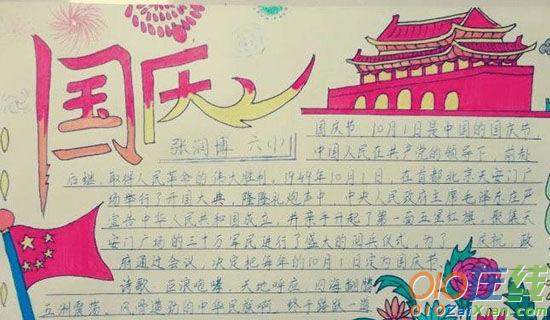 国庆
张润博 六(1)
国庆节，10月1日是中国的国庆节，
中国人民在共产党的领导下，前赴
后继，取得人民革命的伟大胜利，1949年10月1日，在首都北京天安门广
场举行了开国大典，隆隆礼炮声中，中央人民政府主席毛泽东庄严
宣告中华人民共和国成立，并亲手升起了第一面五星红旗，聚集天
安门广场的三十万军民进行了盛大的阅兵仪式，为了 庆祝，政
府通过会议，决定把每年的10月1日定为国庆节。
诗歌，巨浪咆哮，天地呼应，四海翻腾
五洲震荡，风雷激动的中华民族啊，终于踏
在线
ZaiXian.com